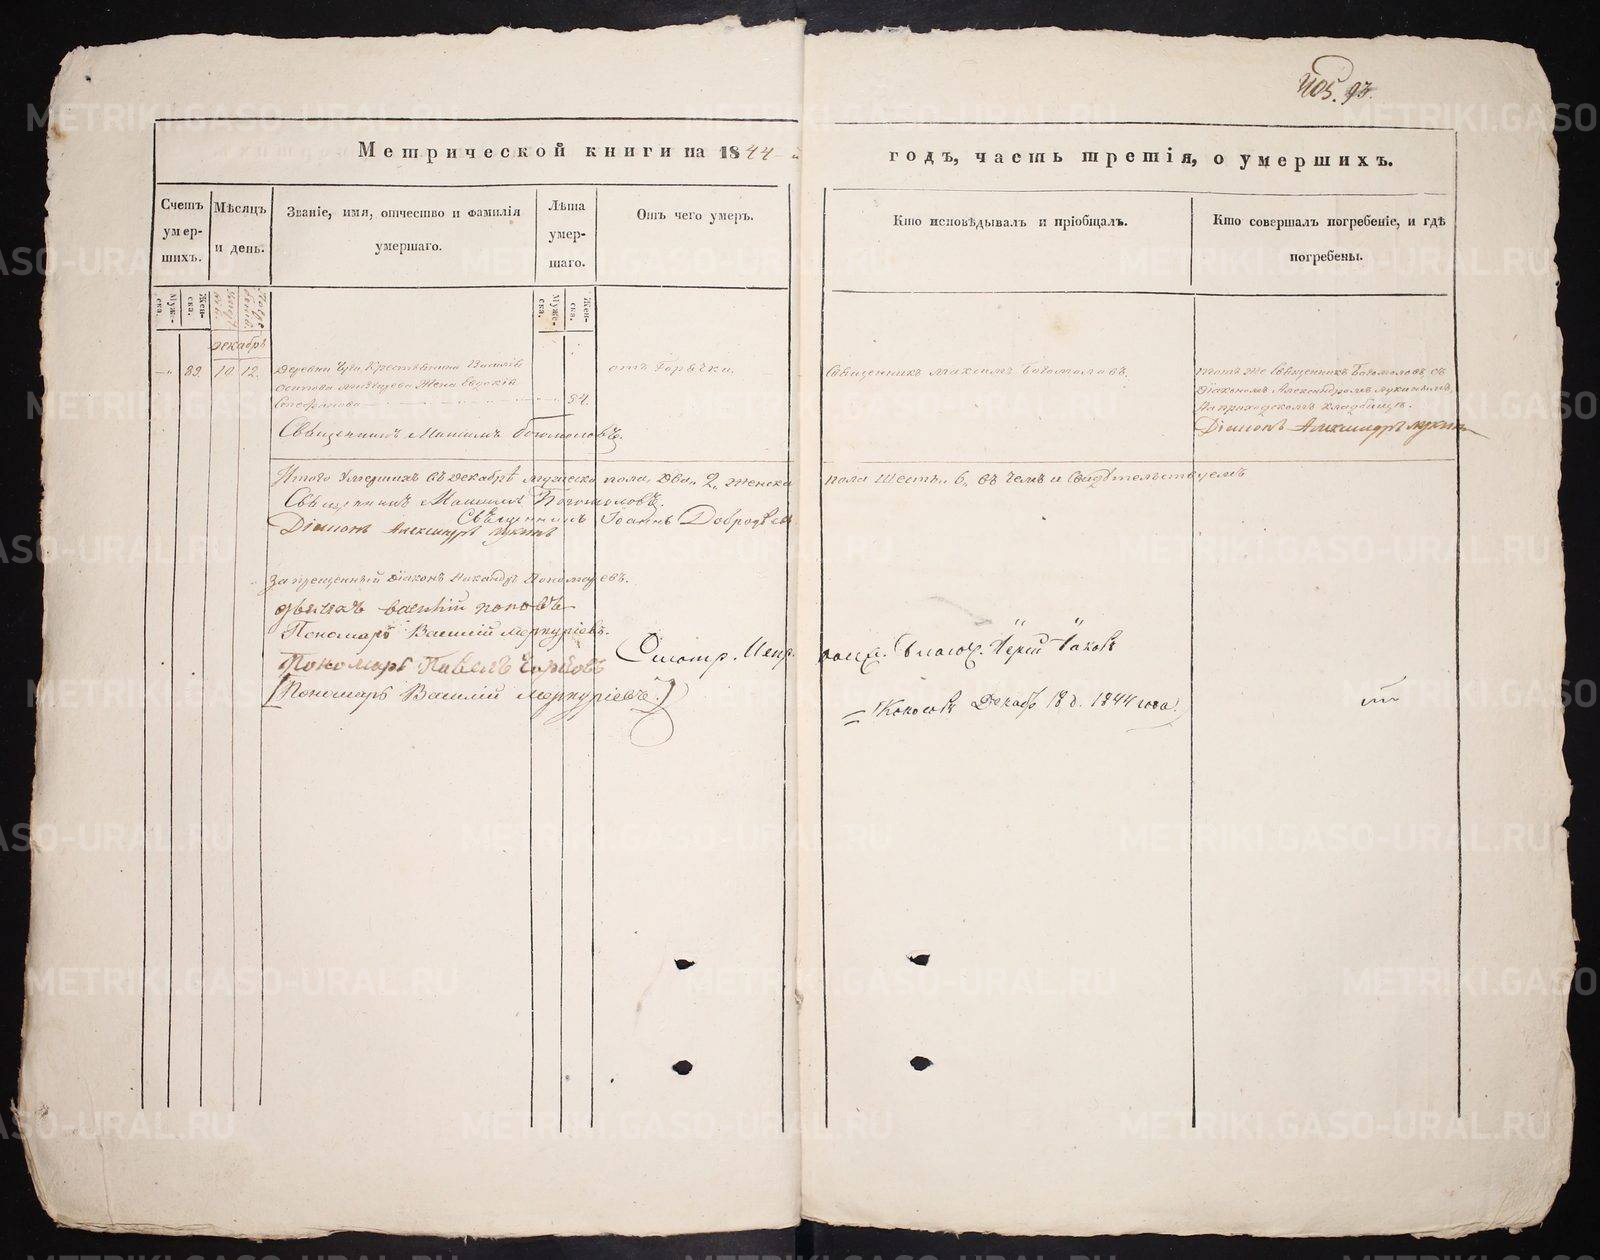 405. 93.
Метрической книги на 1844
годъ, часть третія, о умершихъ.
Счетъ умер-шихъ.
Мѣсяцъ и день.
Званіе, имя, отчество и фамилія умершаго.
Лѣта умер-шаго.
Отъ чего умеръ.
Кто исповѣдывалъ и пріобщалъ.
Кто совершалъ погребеніе, и гдѣ погребены.
Муже-ска.
Жен-ска.
Муже-ска.
Жен-ска.
декабрь
89. 10 12.
Деревни Крестьянина Василія
Осипова Жена Евдокія
Стефанова 84.
отъ Горячки.
Священникъ Максимъ Богомоловъ.
тотъ же Священникъ Богомоловъ съ
Діакономъ Александромъ Лукинымъ,
на приходскомъ кладбищѣ.
Діаконъ Александръ Лукинъ
Священникъ Максимъ Богомоловъ.
Итого Умершихъ въ декабрѣ мужеска пола два, 2, женска
пола шесть, 6, въ чемъ и Свидѣтельствуемъ
Священникъ Максимъ Богомоловъ.
Священникъ Іоаннъ Добродѣевъ
Діаконъ Александръ Лукинъ
Запрещенный діаконъ Никандръ Пономаревъ.
дьячекъ василій поповъ
Пономарь Василій Меркуріевъ.
Пономарь Павелъ
Пономарь Василій Меркуріевъ.
Смотр. Испр. Благоч. Іерей Іаковъ
Декабр 18 д. 1844 года.